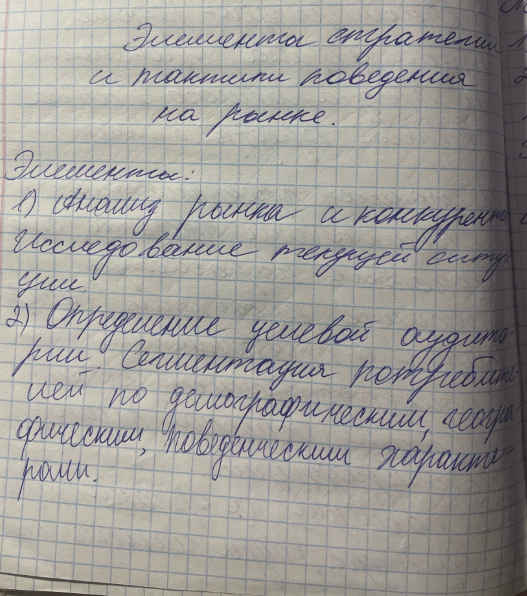 Элементы стратегии
и тактики поведения
на рынке.
Элементы:
1) Анализ рынка и конкурента
Исследование текущей ситу-
ции.
2) Определение целевой аудито-
рии. Сегментация потребите-
лей по демографическим, геогра
фическим, поведенческим характе-
рами.